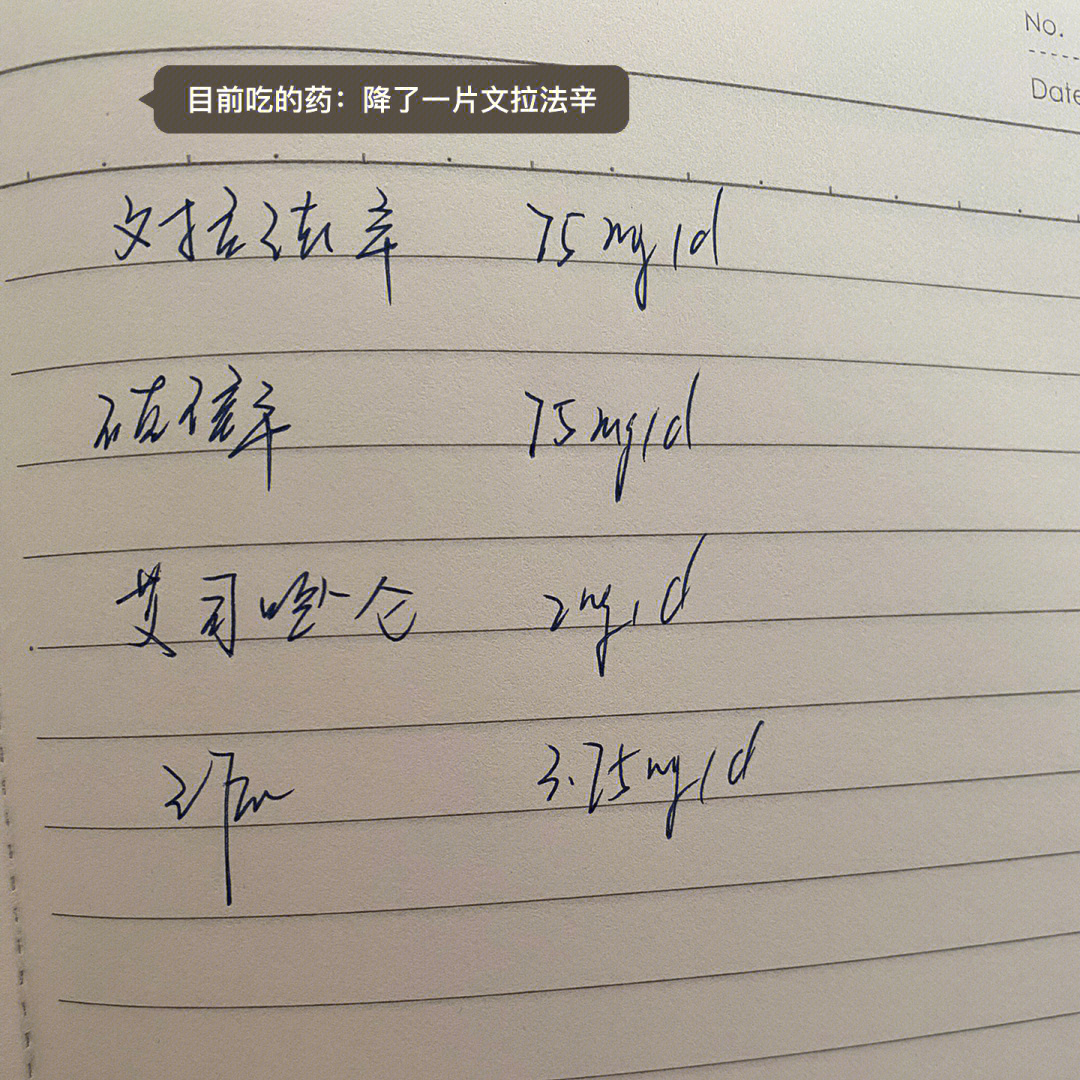 No.
Date
目前吃的药：降了一片文拉法辛
文拉法辛 75mg/d
75mg/d
艾司唑仑 2mg/d
3.75mg/d